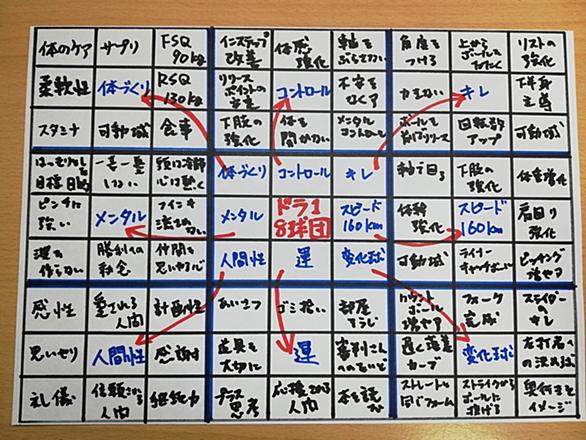 体のケア サプリ FSQ 90kg インステップ 改善 体幹 強化 軸を ぶらさない 角度を つける 上から ボールを たたく リストの 強化
柔軟性 体づくり RSQ 130kg リリース ポイントの 安定 コントロール 不安を なくす 力まない キレ 下半身 主導
スタミナ 可動域 食事 下肢の 強化 体を 開かない メンタル コントロール ボールを 前でリリース 回転数 アップ 可動域
はっきりした 目標 目的 一喜一憂 しない 頭は冷静 心は熱く 体づくり コントロール キレ 軸で回る 下肢の 強化 体重増化
ピンチに 強い メンタル メンタル ドラ1 8球団 スピード 160km 体幹 強化 スピード 160km 肩回り 強化
波を 作らない 勝利への 執念 仲間を 思いやる心 人間性 運 変化球 可動域 ライナー キャッチボール ピッチング 増やす
感性 愛される 人間 計画性 あいさつ ゴミ拾い 部屋 そうじ カウント ボール 増やす フォーク 完成 スライダー のキレ
思いやり 人間性 感謝 道具を 大切に 運 審判さん 遅く 落差 カーブ 変化球 左打者へ の決め球
礼儀 信頼される 人間 継続力 プラス 思考 応援される 人間 本を読む ストレートと 同じフォーム ストライクから ボールに 投げる 奥行きを イメージ